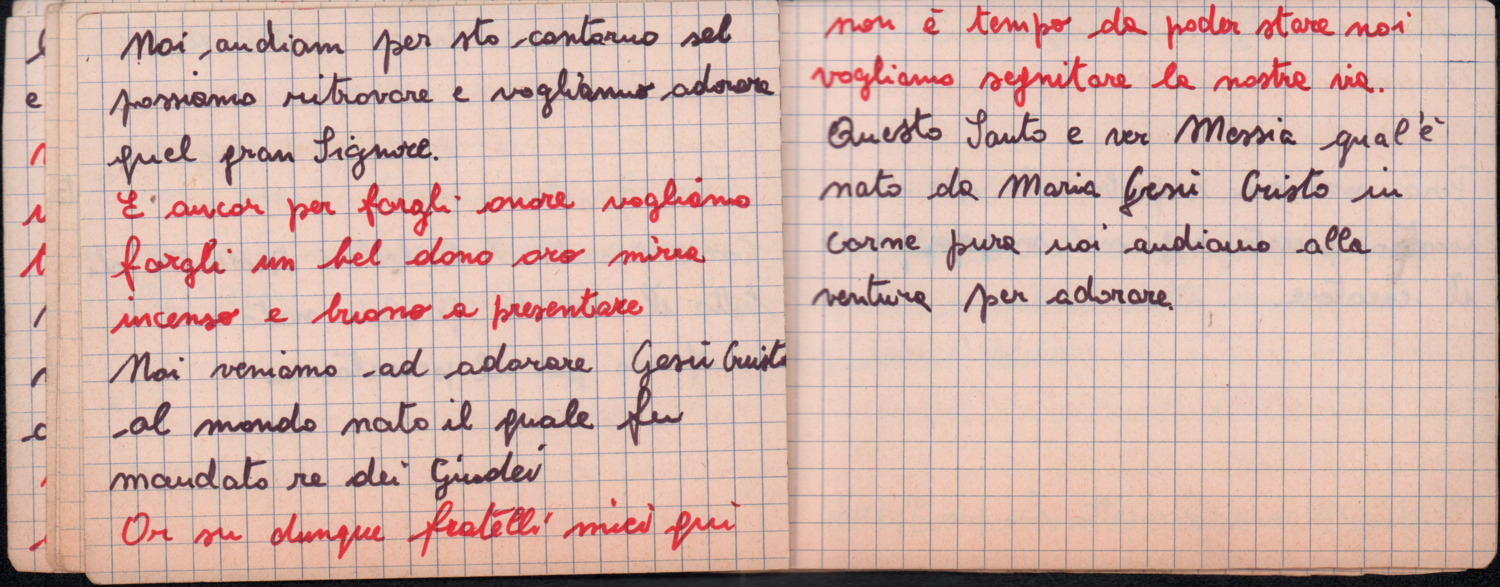 Noi andiam per sto contorno sel
possiamo ritrovare e vogliamo adorare
quel gran Signore.
E ancor per fargli onore vogliamo
fargli un bel dono oro mirra
incenso e buono a presentare
Noi veniamo ad adorare Gesù Cristo
al mondo nato il quale fu
mandato re dei Giudei
Or su dunque fratelli miei qui
non è tempo da poder stare noi
vogliamo seguitare la nostra via.
Questo Santo e ver Messia qual'è
nato da Maria Gesù Cristo in
carne pura noi andiamo alla
ventura per adorare.